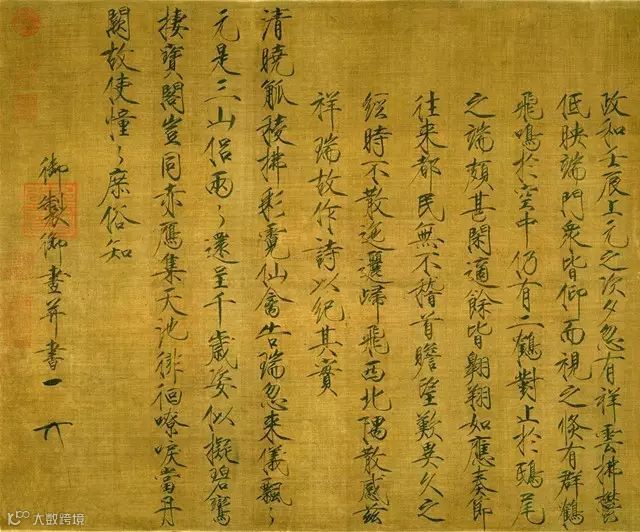 政和壬辰上元之次夕忽有祥雲拂鬱
低映端門衆皆仰而視之倏有群鶴
飛鳴於空中仍有二鶴對止於鴟尾
之端頗甚閑適餘皆翱翔如應奏節
往來都民無不稽首瞻望歎異久之
經時不散迤邐歸飛西北隅散感茲
祥瑞故作詩以紀其實
清曉觚稜拂彩霓仙禽告瑞忽來儀飄〻
元是三山侶兩〻還呈千歲姿似擬碧鸞
棲寶閣豈同赤鴈集天池徘徊嘹唳當丹
闕故使憧〻庶俗知
御製御畫并書
大数跨境